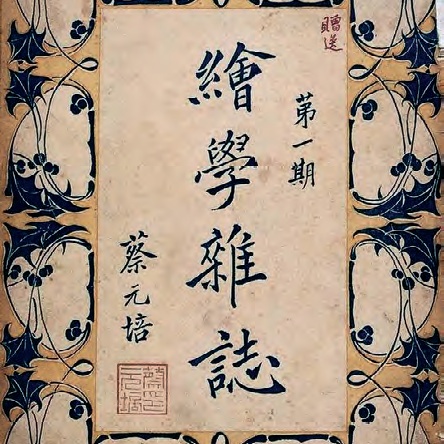 贈送
第一期
繪學雜誌
蔡元培
蔡元培印